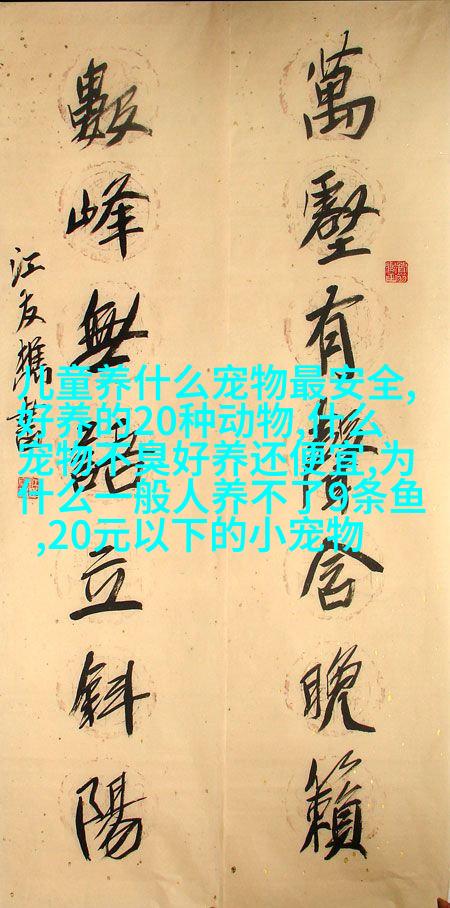 萬壑有聲含晚籟
數峰無語立斜陽
江友樵書
儿童养什么宠物最安全,
好养的20种动物,什么
宠物不臭好养还便宜,为
什么一般人养不了9条鱼
,20元以下的小宠物